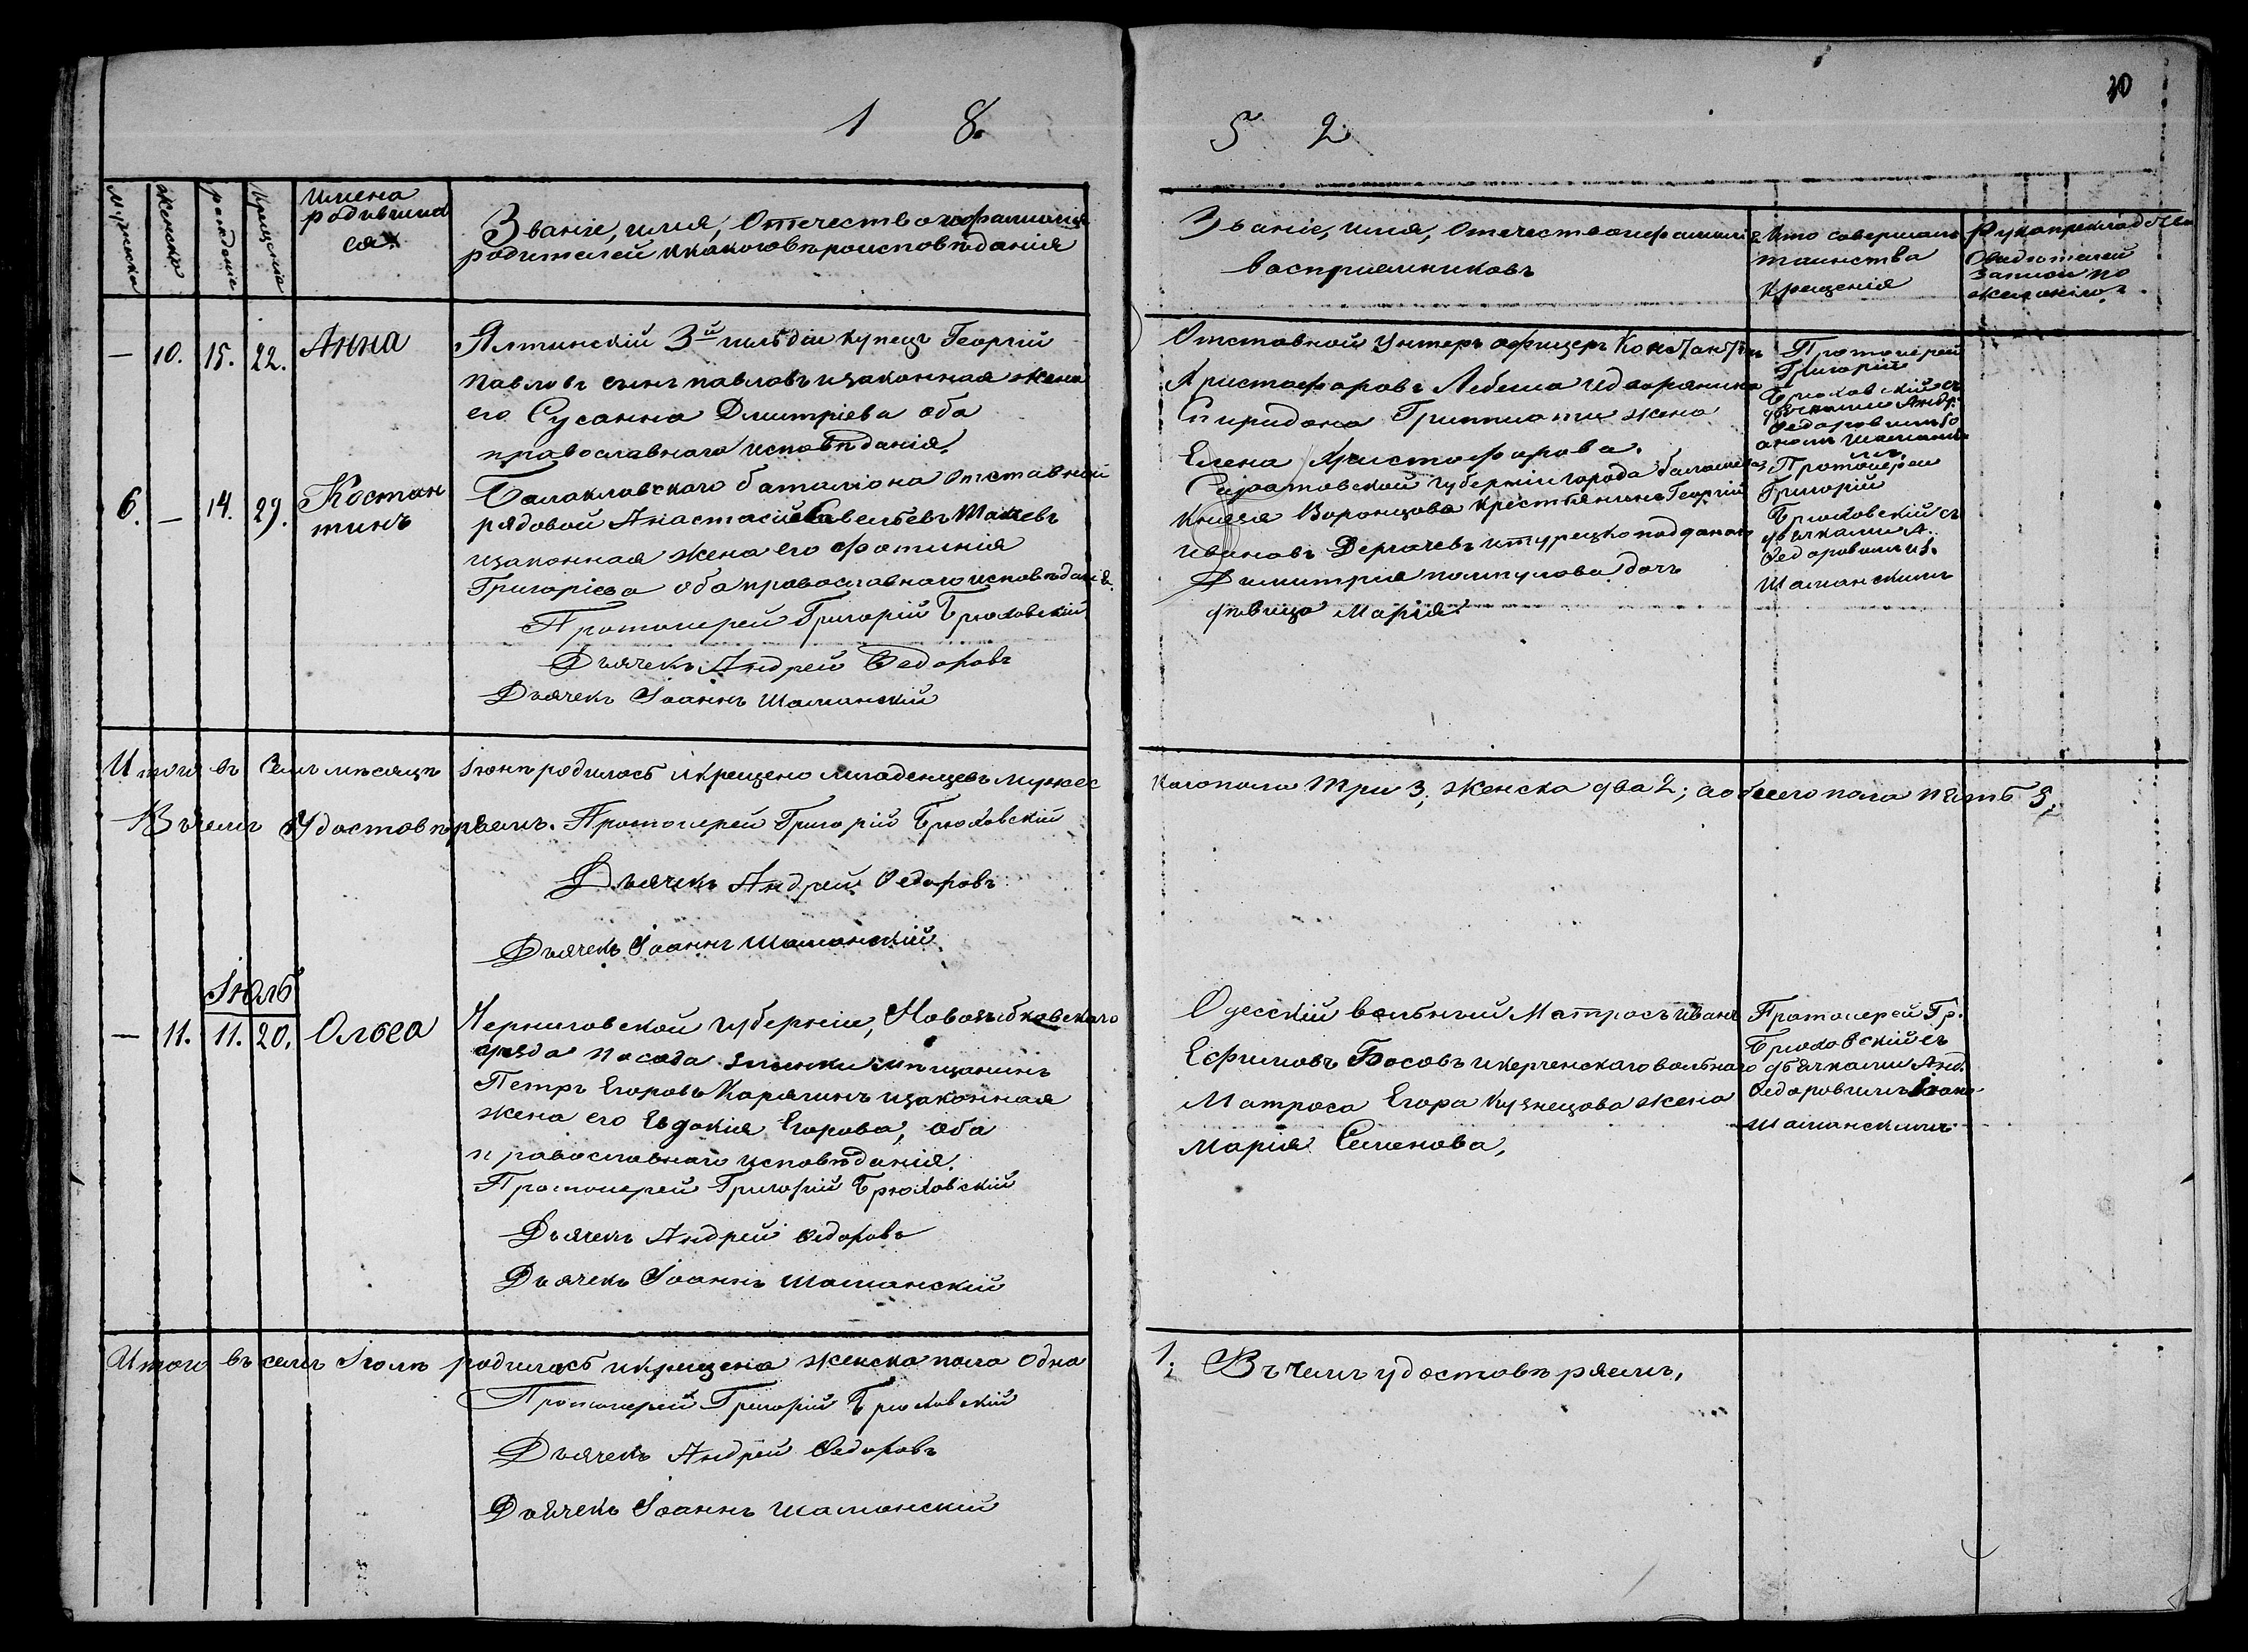 1 8
5 2
10
Мужска
Женска
рожденіе
Крещеніе
Имена
родивших
ся
Званіе, имя, Отечество и фамилія
родителей и какого въроисповѣданія
Званіе, имя, Отечество и фамилія
воспріемниковъ
Кто совершалъ
таинства
Крещенія
Рукоприклад
Свидетелей
записи по
желанію
— 10. 15. 22. Анна
Ялтинскій 3й гильдіи купецъ Георгій
Павловъ сынъ Павловъ и законная жена
его Сусанна Дмитріева оба
православнаго исповѣданія.
Отставной унтеръ офицеръ Константинъ
Христофоровъ Лебеша и дворянина
Спиридона Гриппиоти жена
Елена Христофорова.
Протоиерей
Григорій
Брюховскій съ
дьячками Андр.
Федоровым
6. — 14. 29. Костан
тинъ
Балаклавского баталіона Отставной
рядовой Анастасій Савельевъ
и законная жена его Фотинія
Григоріева оба православнаго исповѣданія.
Протоиерей Григорій Брюховскій
Дьячекъ Андрей Федоровъ
Дьячекъ Іоаннъ Шаманскій
губерніи города
Князя Воронцова крестьянинъ Георгій
Ивановъ Дергачевъ и турецко подданого
Димитрія дочь
дѣвица Марія.
Протоиерей
Григорій
Брюховскій съ
дьячками А.
Федоровым и І.
Шаманскимъ
Итого въ семъ мѣсяцѣ Іюнѣ родилось и крещено младенцевъ мужес
каго пола три 3; женска два 2; а обоего пола пять 5;
Въ чемъ Удостовѣряемъ. Протоиерей Григорій Брюховскій
Дьячекъ Андрей Федоровъ
Дьячекъ Іоаннъ Шаманскій
Іюль
— 11. 11. 20. Ольга
Черниговской губерніи, Новозыбковского
уезда посада Злынки мѣщанинъ
Петръ Егоровъ Карягинъ и законная
жена его Евдокія Егорова, оба
православнаго исповѣданія.
Протоиерей Григорій Брюховскій
Дьячекъ Андрей Федоровъ
Дьячекъ Іоаннъ Шаманскій
Одесскій вольный Матросъ Иванъ
Ефимовъ Босовъ и керченскаго вольнаго
Матроса Егора Кузнецова жена
Марія Семенова,
Протоиерей Гр.
Брюховскій съ
дьячками Анд.
Федоровым Іоано
Шаманскимъ
Итого въ семъ Іюлѣ родилась и крещена женска пола Одна
1; Въ чемъ удостовѣряемъ,
Протоиерей Григорій Брюховскій
Дьячекъ Андрей Федоровъ
Дьячекъ Іоаннъ Шаманскій